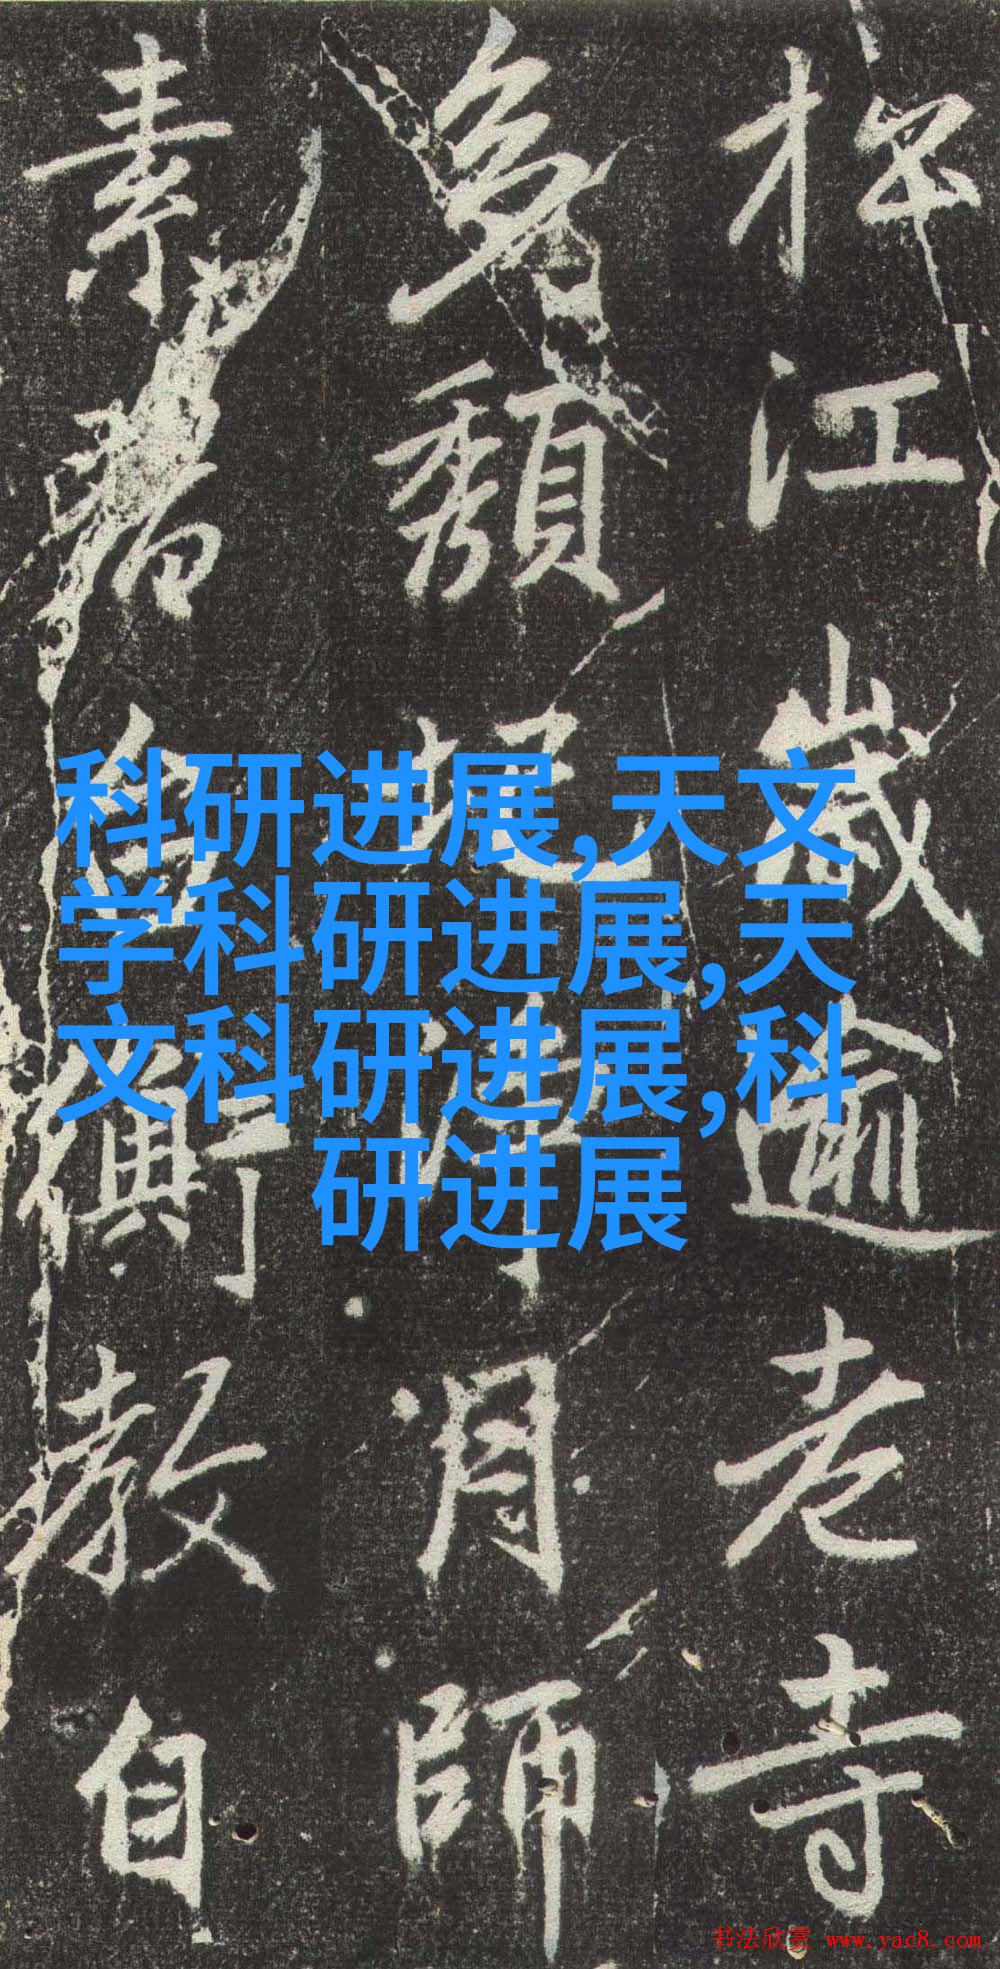 科研进展,天文
学科研进展,天
文科研进展,科
研进展
江歲逾老寺
頽
月師
素
教自
书法欣赏 www.yac8.com